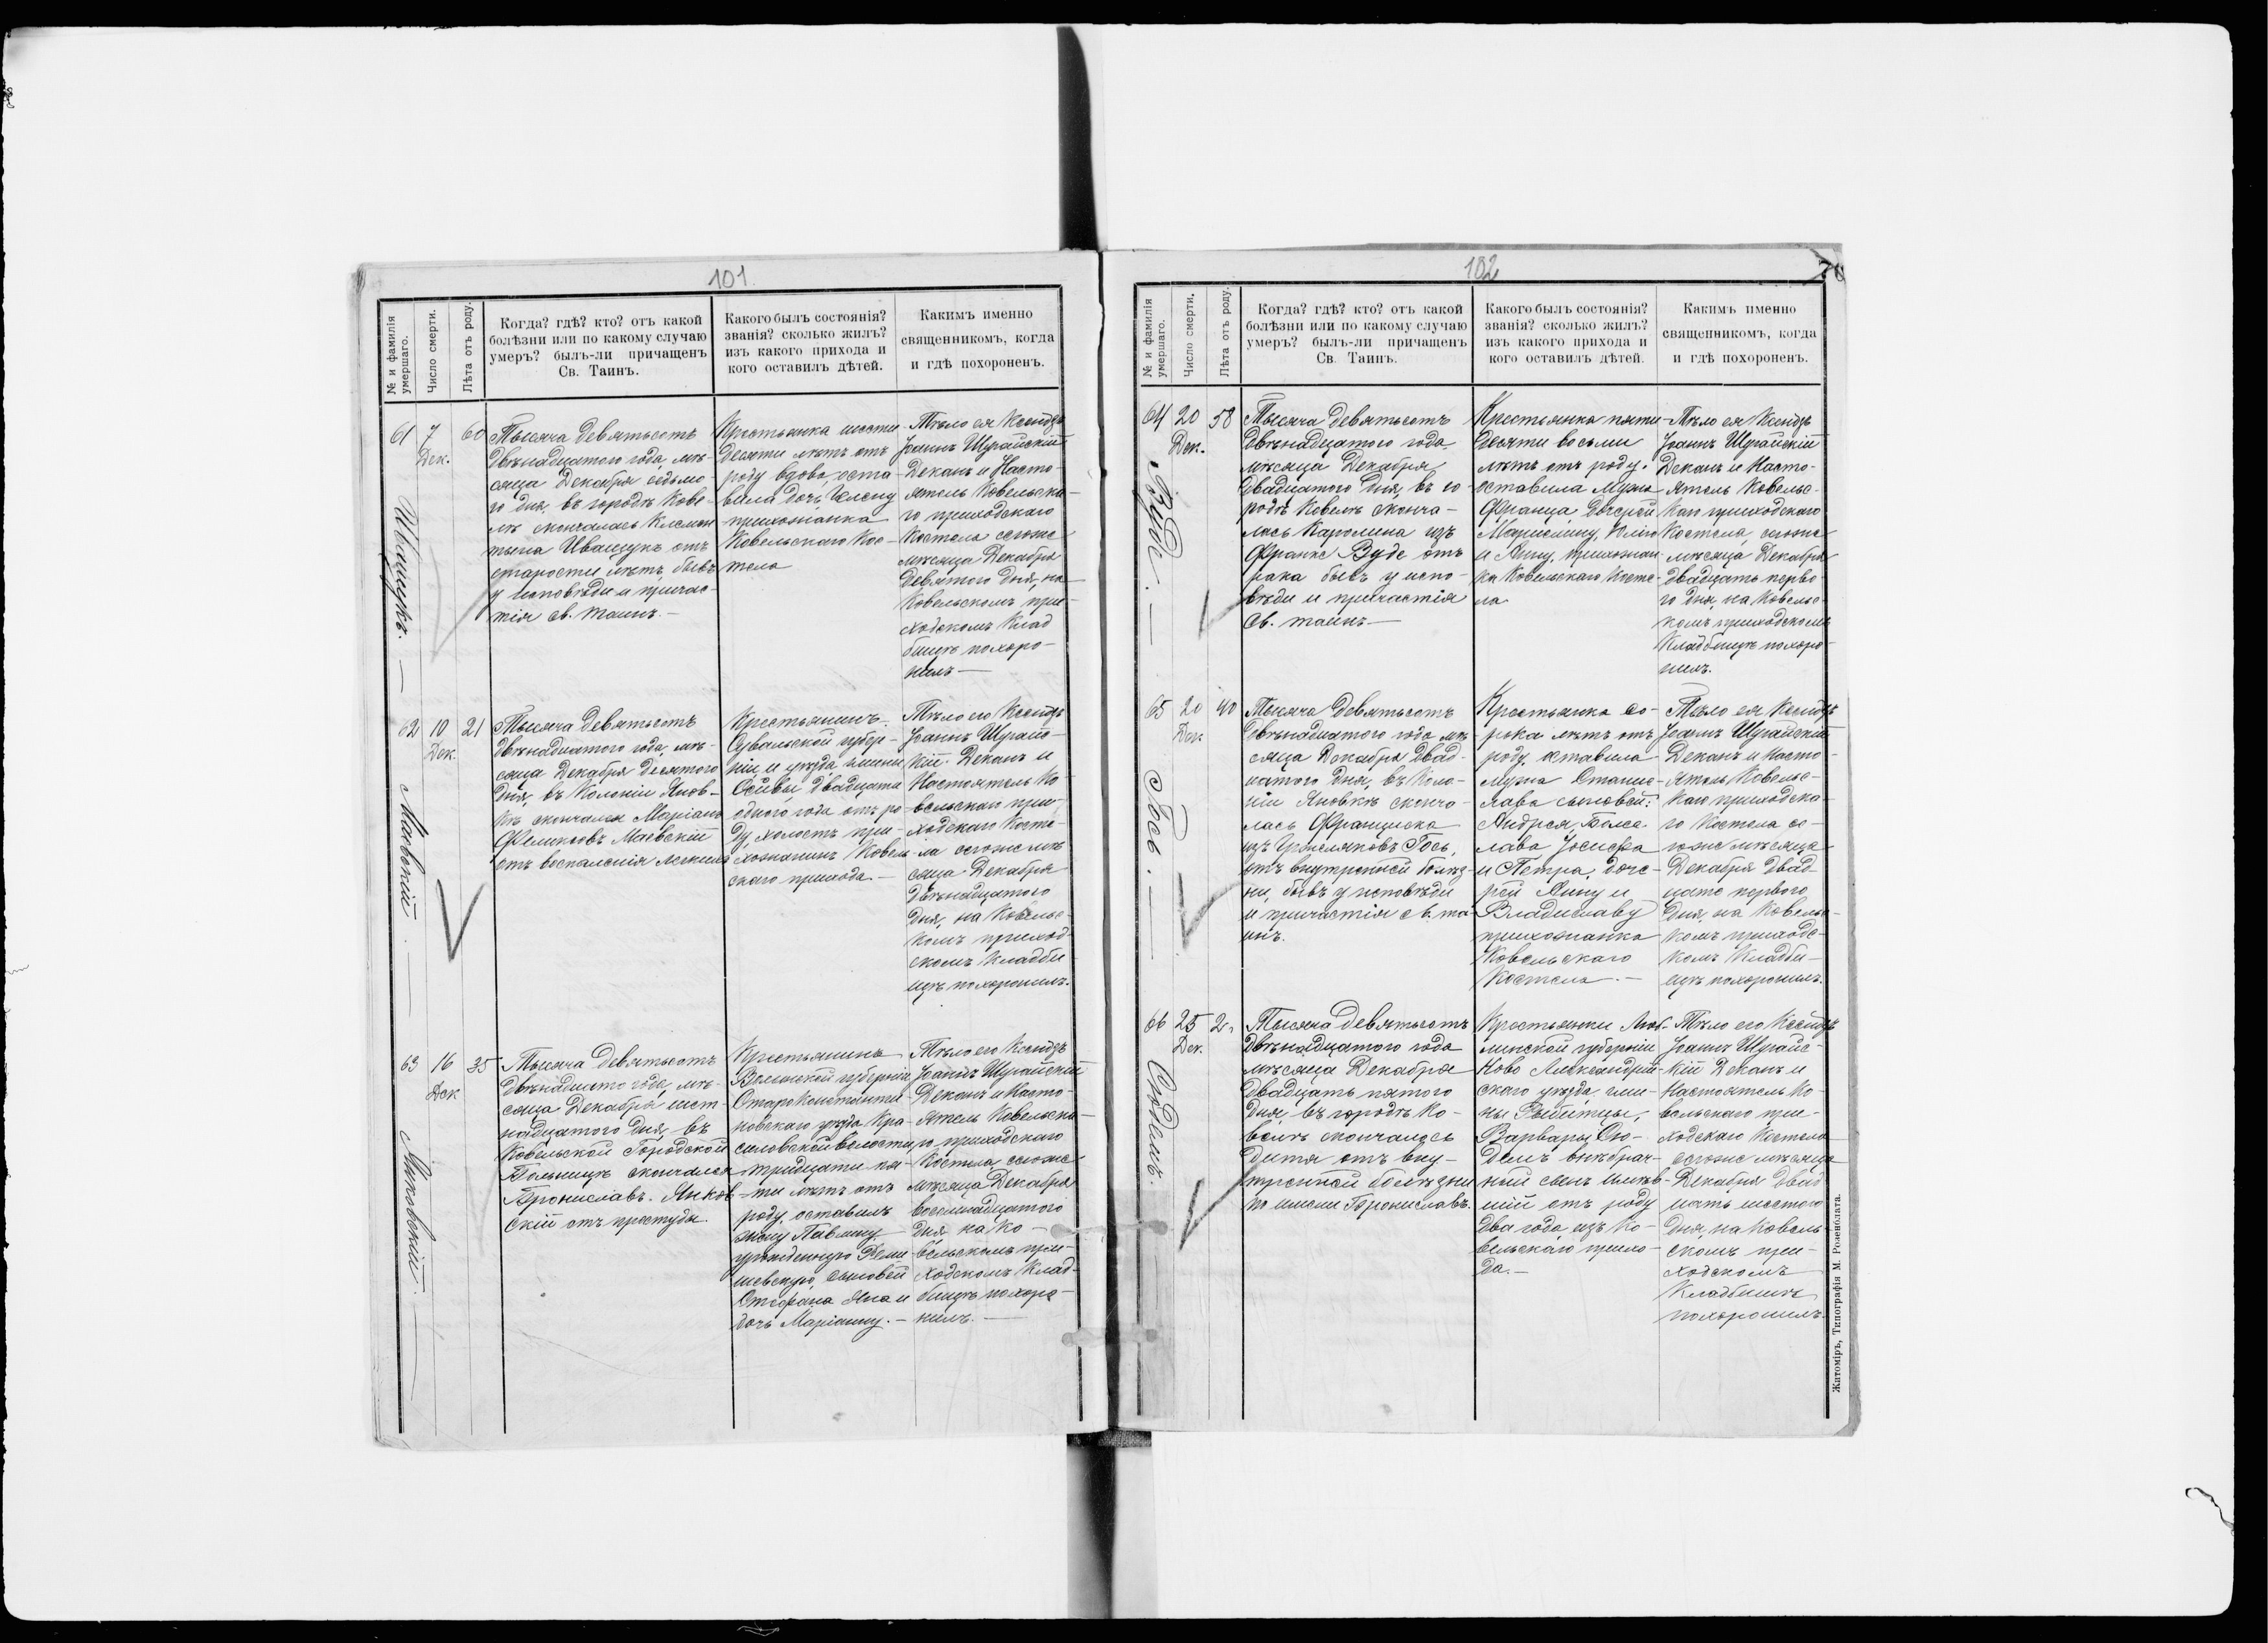 101.
№ и фамилія умершаго.
Число смерти.
Лѣта отъ роду.
Когда? гдѣ? кто? отъ какой
болѣзни или по какому случаю
умеръ? былъ-ли причащенъ
Св. Таинъ.
Какого былъ состоянія?
званія? сколько жилъ?
изъ какого прихода и
кого оставилъ дѣтей.
Какимъ именно
священникомъ, когда
и гдѣ похороненъ.
61
Иващукъ. —
7
Дек.
60
Тысяча девятьсотъ
двѣнадцатого года, мѣ-
сяца Декабря седьмо-
го дня, въ городѣ Кове-
лѣ скончалась Клемен
тына Иващукъ отъ
старости лѣтъ, бывъ
у исповѣди и причас-
тія св. таинъ. —
Крестьянка шести
десяти лѣтъ отъ
роду вдова, оста
вила дочь Гелену
прихожанка
Ковельскаго Кос-
тела
Тѣло ея Ксендзъ
Іоаннъ Шурайскій
Деканъ и Насто-
ятель Ковельска-
го приходскаго
Костела сегоже
мѣсяца Декабря
девятого дня, на
Ковельскомъ при-
ходскомъ Клад
бищѣ похоро-
нилъ —
62
Маевскій. —
10
Дек.
21
Тысяча девятьсотъ
двѣнадцатого года, мѣ-
сяца Декабря десятого
дня, въ Колоніи Янов-
кѣ скончался Маріанъ
Феликсовъ Маевскій
отъ воспаленія легкихъ
Крестьянинъ
Сувальской губер-
ніи и уѣзда гмины
двадцати
одного года отъ ро-
ду, холостъ при-
хожанинъ Ковель-
скаго прихода. —
Тѣло его Ксендзъ
Іоаннъ Шурайс-
кій Деканъ и
Настоятель Ко-
вельскаго при-
ходскаго Косте-
ла сегоже мѣ
сяца Декабря
двѣнадцатого
дня, на Ковельс-
комъ приход-
скомъ кладби
щѣ похоронилъ.
63
Янковскій. —
16
Дек
35
Тысяча девятьсотъ
двѣнадцато года, мѣ-
сяца Декабря шест-
надцатого дня, въ
Ковельской Городской
Больницѣ скончался
Брониславъ Янков-
скій отъ простуды.
Крестьянинъ
Волынской губерніи
Староконстанти-
новскаго уѣзда Кра-
силовской волости,
тридцати пя-
ти лѣтъ отъ
роду, оставилъ
жену Павлину
урожденную
сыновей
Стефана Яна и
дочь Маріанну. —
Тѣло его Ксендзъ
Іоаннъ Шурайскій
Деканъ и Насто-
ятель Ковельска-
го приходскаго
Костела сегоже
мѣсяца Декабря
восемнадцатого
дня на Ко-
вельскомъ при-
ходскомъ Клад-
бищѣ похоро-
нилъ. —
102
№ и фамилія умершаго.
Число смерти.
Лѣта отъ роду.
Когда? гдѣ? кто? отъ какой
болѣзни или по какому случаю
умеръ? былъ-ли причащенъ
Св. Таинъ.
Какого былъ состоянія?
званія? сколько жилъ?
изъ какого прихода и
кого оставилъ дѣтей.
Какимъ именно
священникомъ, когда
и гдѣ похороненъ.
64
Вуде. —
20
Дек.
58
Тысяча девятьсотъ
двѣнадцатого года
мѣсяца Декабря
двадцатого дня, въ го-
родѣ Ковелѣ сконча-
лась Каролина изъ
Франке Вуде отъ
рака бывъ у испо-
вѣди и причастія
Св. таинъ —
Крестьянка пяти
десяти восьми
лѣтъ отъ роду.
оставила мужа
Франца дочерей
Юлію
и Анну, прихожан
ка Ковельскаго Косте-
ла
Тѣло ея Ксендзъ
Іоаннъ Шурайскій
Деканъ и Насто-
ятель Ковельс-
каго приходскаго
Костела, сегоже
мѣсяца Декабря
двадцать перво-
го дня, на Ковельс-
комъ приходскомъ
Кладбищѣ похоро-
нилъ.
65
Гось. —
20
Дек
40
Тысяча девятьсотъ
двѣнадцатого года мѣ-
сяца Декабря двад-
цатого дня, въ Коло-
ніи Яновкѣ сконча-
лась Франциска
изъ Гось,
отъ внутренней болѣз-
ни, бывъ у исповѣди
и причастія св. та-
инъ.
Крестьянка со-
рока лѣтъ отъ
роду, оставила
мужа Станис-
лава сыновей:
Андрея, Болес-
лава Іосифа
и Петра, доче-
рей Анну и
Владиславу
прихожанка
Ковельскаго
Костела. —
Тѣло ея Ксендзъ
Іоаннъ Шурайскій
Деканъ и Насто-
ятель Ковельс-
каго приходска-
го Костела се-
гоже мѣсяца
Декабря двад-
цать первого
дня, на Ковельс-
комъ приходс-
комъ Кладби-
щѣ похоронилъ.
66
25
Дек.
2
Тысяча девятьсотъ
двѣнадцатого года
мѣсяца Декабря
двадцать пятого
дня, въ городѣ Ко-
велѣ скончалось
дитя отъ вну-
тренней болѣзни
по имени Брониславъ.
Крестьянки Люб-
линской губерніи
Ново Александрій-
скаго уѣзда, гми-
ны
Варвары
внѣбрач-
ный сынъ имѣв-
шій отъ роду
два года, изъ Ко-
вельскаго прихо-
да. —
Тѣло его Ксендзъ
Іоаннъ Шурайс-
кій Деканъ и
Настоятель Ко-
вельскаго при-
ходскаго Костела
сегоже мѣсяца
Декабря двад
цать шестого
дня, на Ковель-
скомъ при-
ходскомъ
Кладбищѣ
похоронилъ.
Житоміръ, Типографія М. Розенблата.